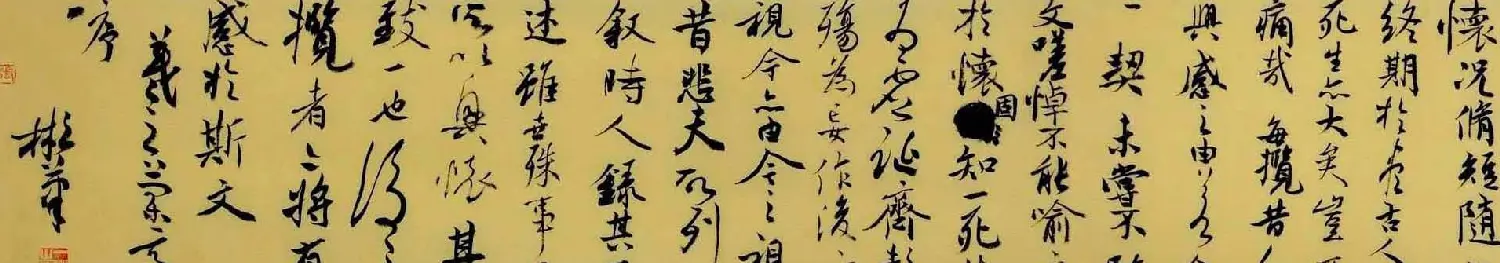 懷况脩短隨
終期於盡古人
死生亦大矣豈
痛哉每攬昔
興感之由若
一契未嘗不臨
文嗟悼不能喻
於懷固知一死
為虛誕齊彭
殤為妄作後之
視今亦由今之視
昔悲夫故列
叙時人録其
述雖世殊事
所以興懷其
致一也後之
攬者亦將有
感於斯文
羲之
序